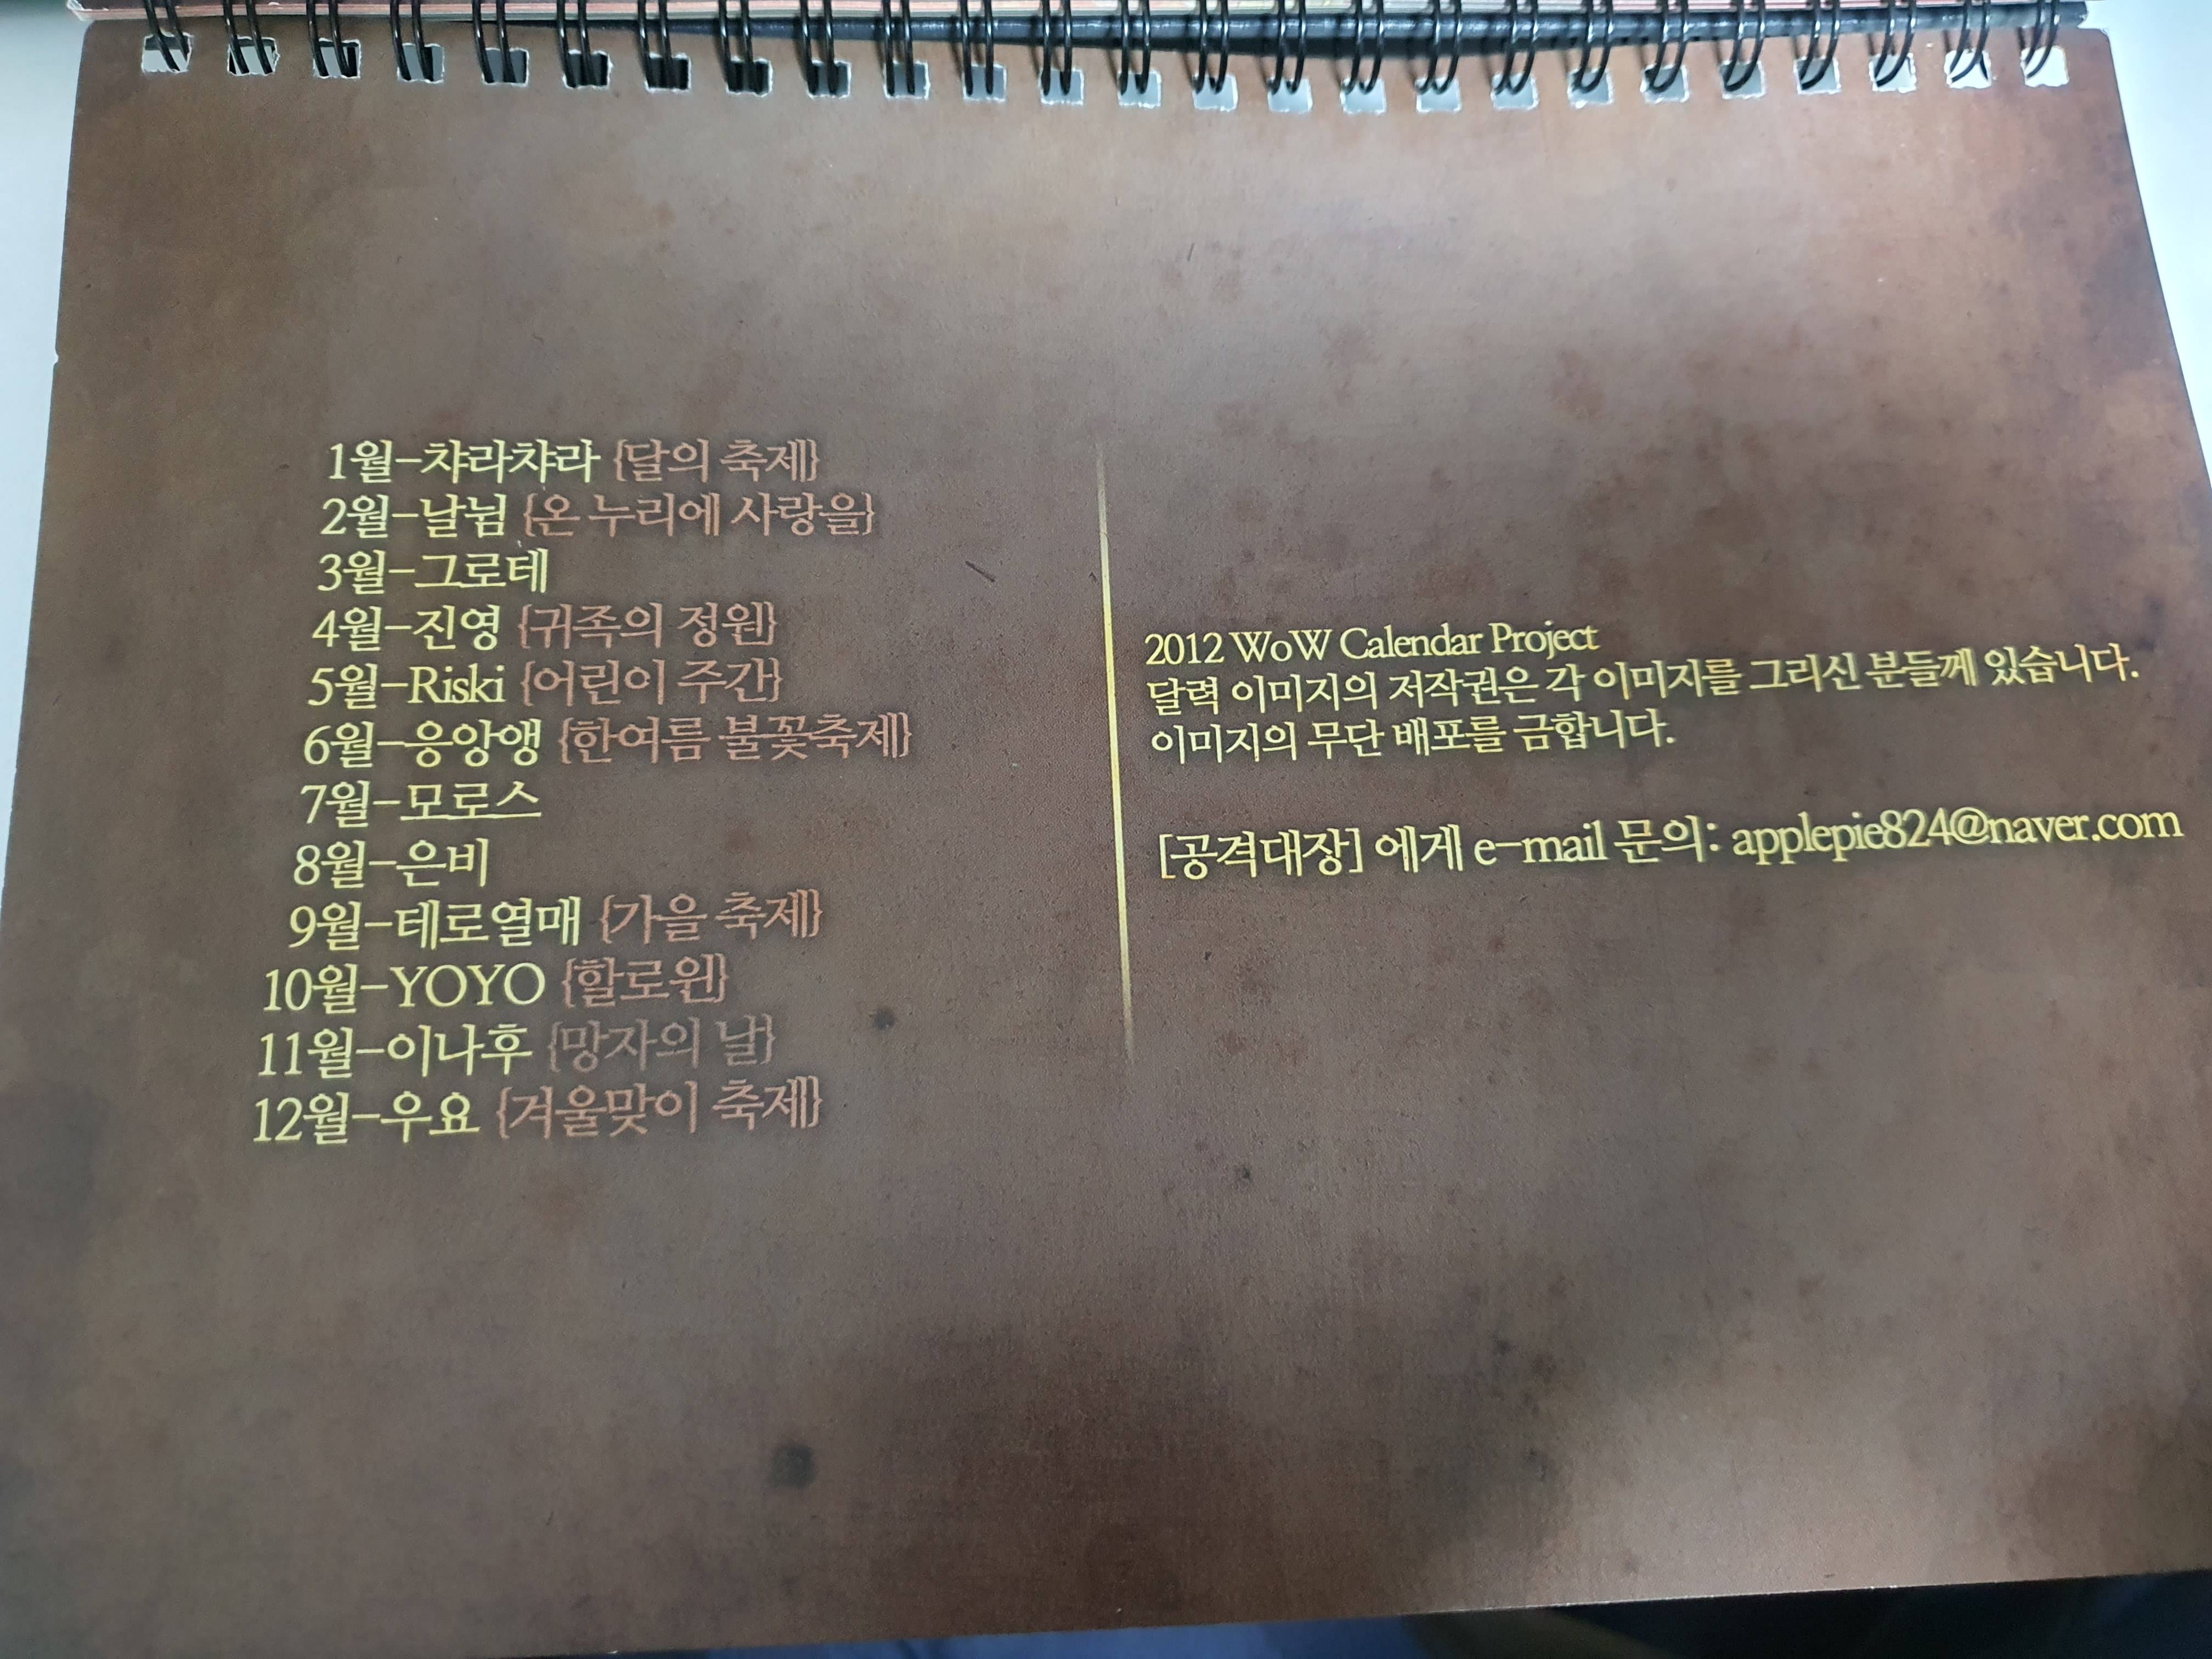 1월-챠라챠라 {달의 축제}
2월-날님 {온 누리에 사랑을}
3월-그로테
4월-진영 {귀족의 정원}
5월-Riski {어린이 주간}
6월-응앙앵 {한여름 불꽃축제}
7월-모로스
8월-은비
9월-테로열매 {가을 축제}
10월-YOYO {할로윈}
11월-이나후 {망자의 날}
12월-우요 {겨울맞이 축제}
2012 WoW Calendar Project
달력 이미지의 저작권은 각 이미지를 그리신 분들께 있습니다.
이미지의 무단 배포를 금합니다.
[공격대장] 에게 e-mail 문의: applepie824@naver.com